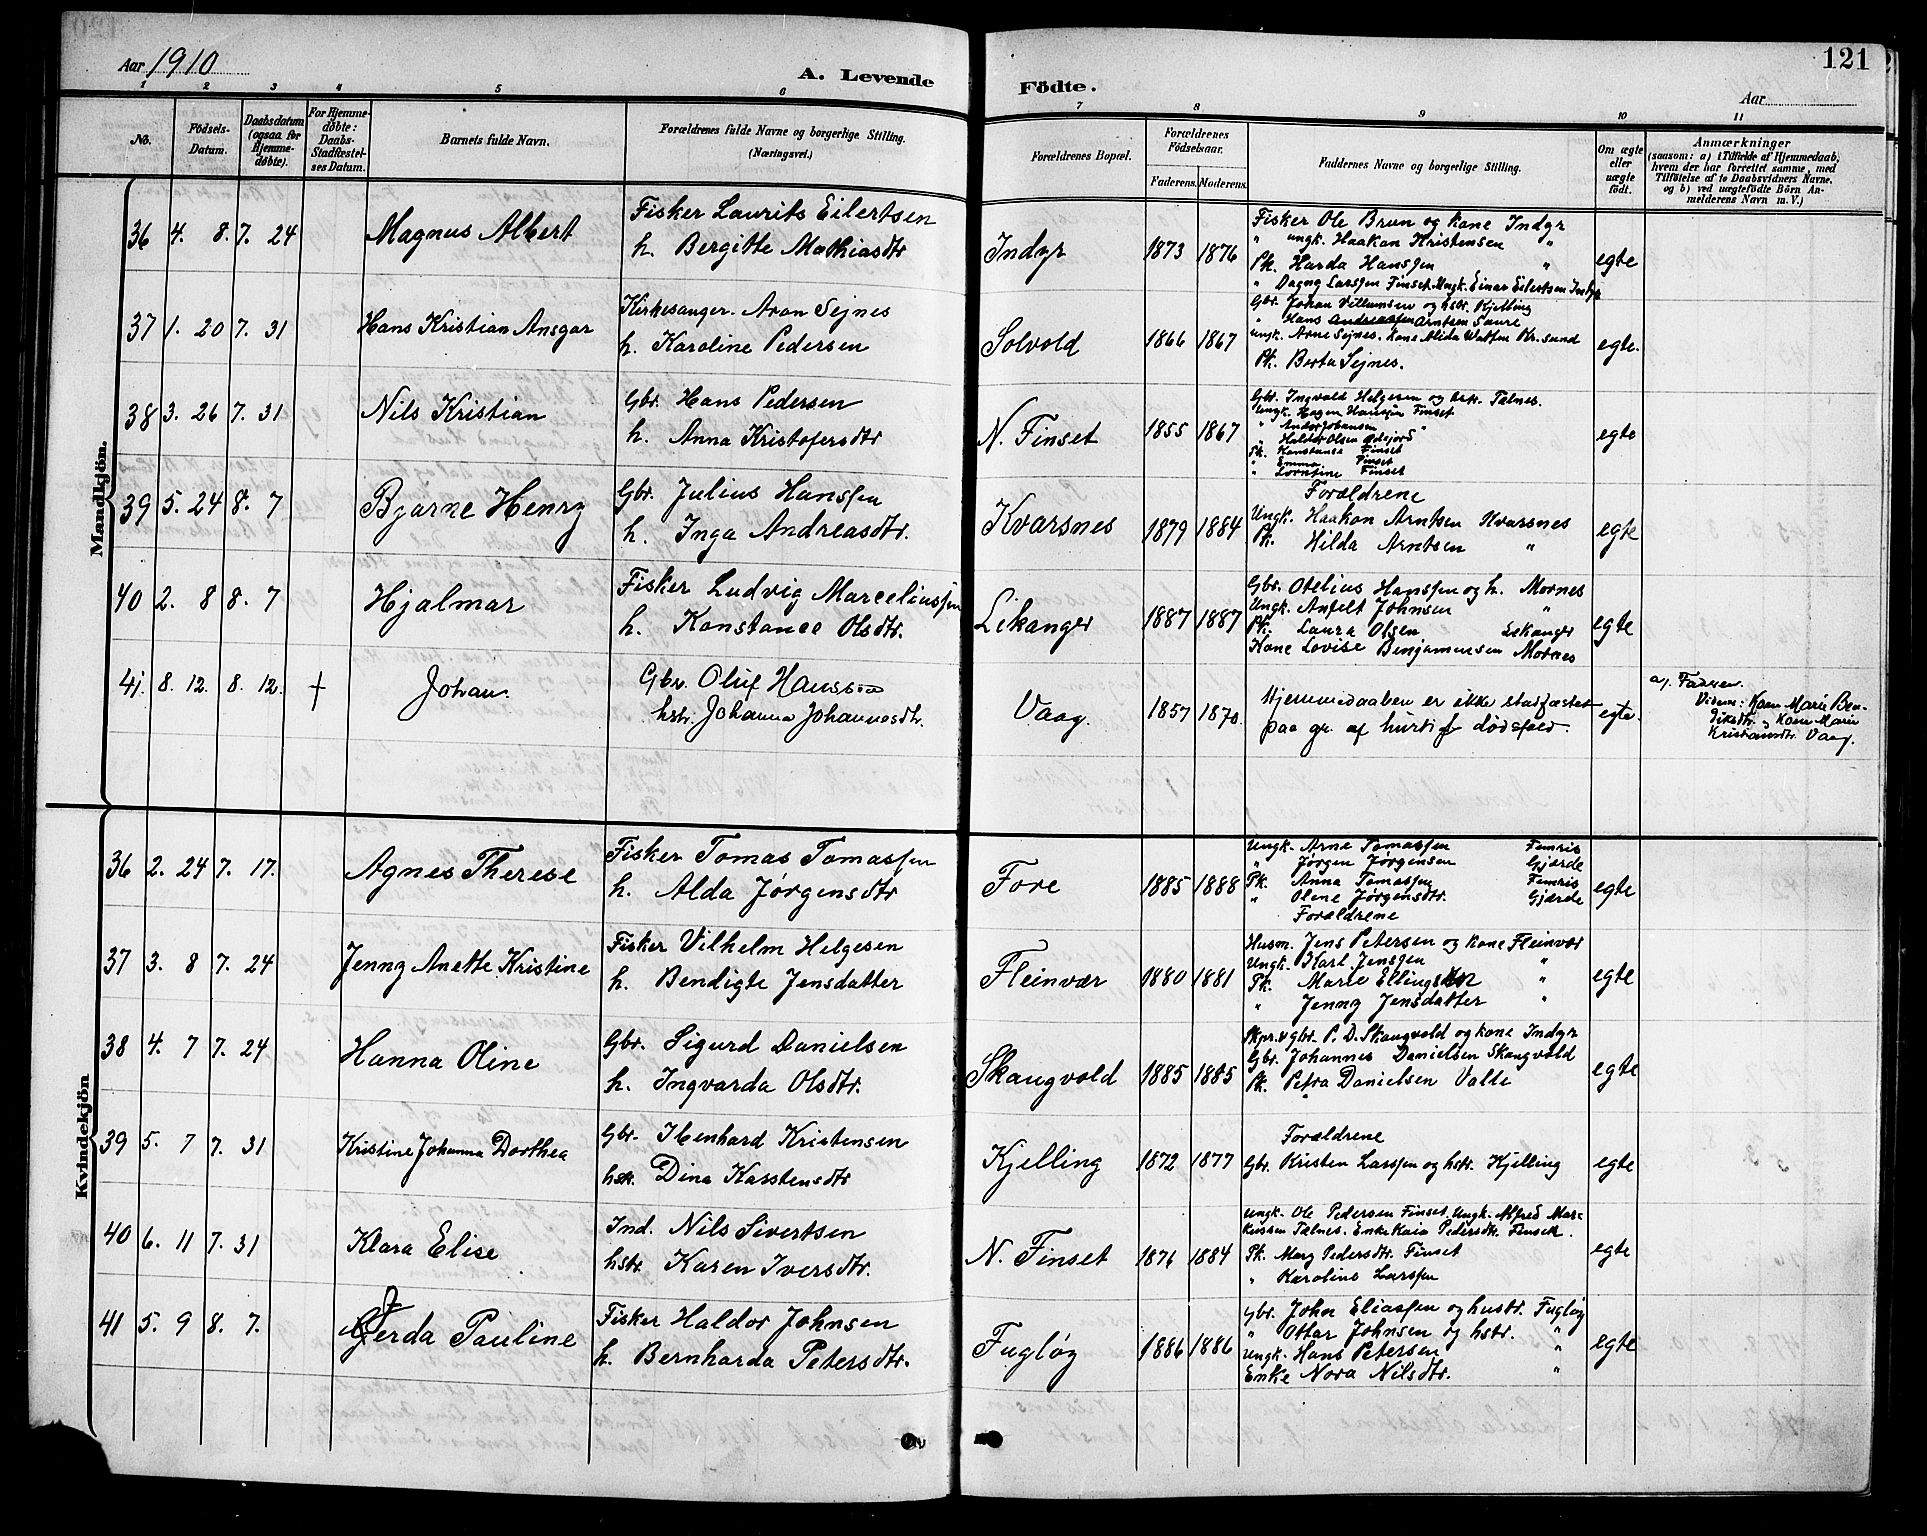 Aar 1910
A. Levende
Födte.
121
Aar
1 2 3 4 5 6 7 8 9 10 11
No.
Födsels-Datum.
Daabsdatum (ogsaa for Hjemmedøbte).
For Hjemmedøbte: Daabs-Stadfæstelses Datum.
Barnets fulde Navn.
Forældrenes fulde Navne og borgerlige Stilling. (Næringsvei.)
Forældrenes Bopæl.
Forældrenes Födselsaar.
Faderens. Moderens.
Faddernes Navne og borgerlige Stilling.
Om ægte eller uægte födt.
Anmærkninger
(saasom: a) i Tilfælde af Hjemmedaab, hvem der har forrettet samme, med Tilföielse af to Daabsvidners Navne, og b) ved uægtefödte Börn Anmelderens Navn m. V.)
Mandkjön.
36 4. 8. 7. 24 Magnus Albert
Fisker Laurits Eilertsen
h. Bergitte Mathiasdtr
Indyr 1873 1876
Fisker Ole Brun og kone Indyr
" ungk. Haakon Kristensen "
Pk. Harda Hanssen "
" Dagny Larssen Finset Ungk. Einar Eilertsen Indyr
egte
37 1. 20 7. 31 Hans Kristian Ansgar
Kirkesanger. Aron Sejnes
h. Karoline Pedersen
Solvold 1866 1867
Gbr. Johan Villumsen og hstr. Kjelling
" Hans Andreassen Arntsen Saure
ungk. Arne Sejnes. Kone Alida Kr.sund
Pk. Berta Sejnes.
egte.
38 3. 26 7. 31 Nils Kristian
Gbr. Hans Pedersen
h. Anna Kristofersdtr
N. Finset 1855 1867
Gbr. Ingvald Helgesen og hstr. Talnes.
Ungk. Hagen Hanssen Finset
" Andor Johansen "
" Haldor Olsen
Pk. Konstanse Finset
" Emma Finset
" Lorntine Finset
egte
39 5. 24 8. 7 Bjarne Henry
Gbr. Julius Hanssen
h. Inga Andreasdtr.
Kvarsnes 1879 1884
Forældrene
Ungk. Haakon Arntsen Kvarsnes
Pk. Hilda Arntsen "
egte
40 2. 8 8. 7 Hjalmar
Fisker Ludvig Marceliussen
h. Konstance Olsdtr.
Lekanger 1887 1887
Gbr. Otelius Hanssen og h. Mornes
Ungk. Anfelt Johnsen "
Pk. Laura Olsen Lekanger
Kone Lovise Benjamensen Mornes
egte
41. 8. 12. 8. 12. † Johan.
Gbr. Oluf Hansson
hstr. Johanna Johannesdtr.
Vaag. 1857 1870.
Hjemmedaaben er ikke stadfæstet
paa gr. af hurtig dødsfald.
egte.
a). Faderen.
Vidner: Kone Marie Ben-
diksdtr. og Kone Marie
Kristiansdtr. Vaag.
Kvindekjön
36 2. 24 7. 17. Agnes Therese
Fisker Tomas Tomassen
h. Alda Jørgensdtr
Fore 1885 1888
Ungk. Arne Tomassen Femris
" Jørgen Jørgensen Gjærde
Pk. Anna Tomassen Femris
" Olene Jørgensdtr. Gjærde
Forældrene
egte
37 3. 8 7. 24 Jenny Anette Kristine
Fisker Vilhelm Helgesen
h. Bendigte Jensdatter
Fleinvær 1880 1881
Husm. Jens Petersen og kone Fleinvær
Ungk. Karl Jenssen "
Pk. Marie Ellingsen "
" Jenny Jensdatter "
egte
38 4. 7 7. 24 Hanna Oline
Gbr. Sigurd Danielsen
h. Ingvarda Olsdtr.
Skaugvold 1885 1885
Skpr. & gbr. P. D. Skaugvold og kone Indyr
Gbr. Johannes Danielsen Skaugvold
Pk. Petra Danielsen Valle
egte
39 5. 7 7. 31 Kristine Johanna Dorthea
Gbr. Ibenhard Kristensen
hstr. Dina Karstensdtr
Kjelling 1872 1877
Forældrene
Gbr. Kristen Larssen og hstr. Kjelling
egte
40 6. 11 7. 31 Klara Elise
Ind. Nils Sivertsen
hstr. Karen Iversdtr.
N. Finset 1876 1884
Ungk. Ole Pedersen Finset. Ungk. Alfred Mar-
kussen Talnes. Enke Kaia Pedersdtr. Finset.
Pk. Marg Pedersdtr. Finset
" Karoline Larssen
egte
41 5. 9 8. 7. Gjerda Pauline
Fisker Haldor Johnsen
h. Bernharda Petersdtr.
Fugløy 1886 1886
Gbr. John Eliassen og hustr. Fugløy
" Ottar Johnsen og hstr. "
Ungk. Hans Petersen "
Enke Nora Nilsdtr. "
egte